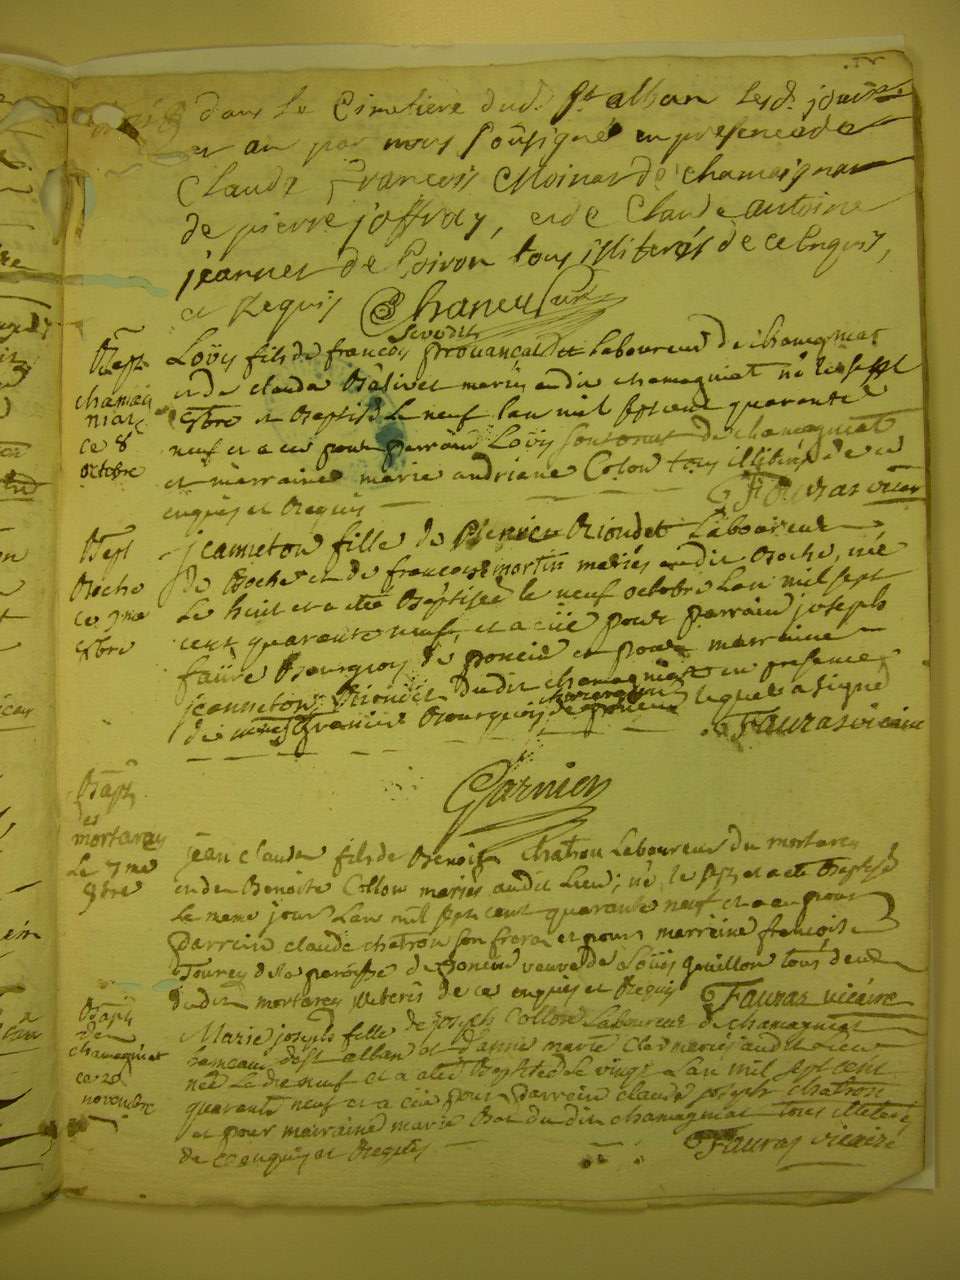 dans le Cimetiere dud. St alban lesd. jour
et an par nous soûsigné en presence de
Claude François Moinar de chamaignar
de pierre joffray, et de Claude antoine
jeannet de Poiron tous illiterés de ce enquis,
et Requis Chanel Curé
Bapt
chamai
niat
ce 8
octobre
Loüis fils de francois provançal dit laboureur de chamagniat
et de claude Balivet mariés audit chamagniat né le sept
8bre et Baptisé le neuf lan mil sept cent quarante
neuf et a eu pour parrain Loüis de chamagniat
et marraine marie andriane Colon tous illiterés de ce
enquis et Requis Fauras vicaire
Bapt
Roche
ce 9me
8bre
jeanneton fille de Rioudet Laboureur
de Roche et de françoise mortin mariés audit Roche, née
le huit et a eté Baptisée le neuf octobre Lan mil sept
cent quarante neuf, et a eüe pour parrain joseph
faüre Bourgeois de poncin et pour marraine
jeanneton Rioudet dudit chamagniat en presence
de Bourgeois de poncin lequel a signé
Fauras vicaire
Garnier
Bapt
et
mortarey
Le 7me
9bre
jean claude fils de Benoist Chatrou Laboureur du mortarey
et de Benoite Collon mariés audit Lieu, né le sept et a eté Baptisé
le meme jour Lan mil sept cent quarante neuf et a eu pour
parrein claude chatron son frere et pour marreine françoise
Tourey de la paroisse de Poncin veuve de Loüis Goüillon tous deux
dudit mortarey illiterés de ce enquis et Requis Fauras vicaire
Bapt
de
chamagniat
ce 20
novembre
Marie joseph fille de joseph Collon Laboureur de chamagniat
hameau de st alban et d'anne marie Cler mariés audit Lieu
née Le dix neuf et a eté Baptisée le vingt Lan mil sept cent
quarante neuf et a eüe pour parrein claude joseph chatron
et pour marraine marie Bat dudit chamagniat tous illiterés
de ce enquis et Requis Fauras vicaire